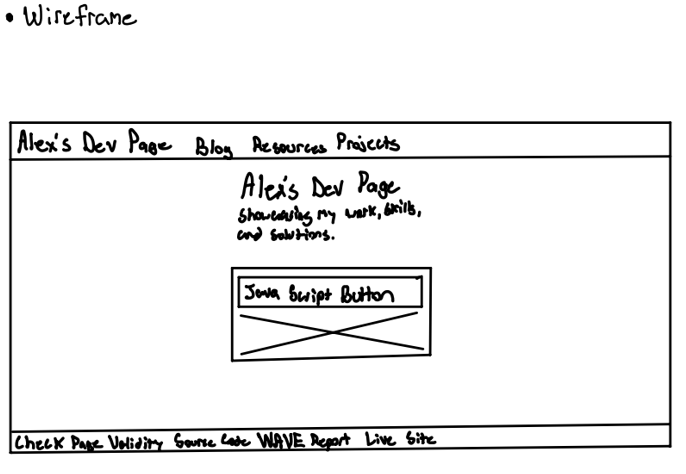 • Wireframe
Alex's Dev Page Blog Resources Projects
Alex's Dev Page
Showcasing my work, skills,
and solutions.
Java Script Button
Check Page Validity Source Code WAVE Report Live Site